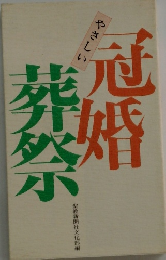 やさしい
冠婚
葬祭